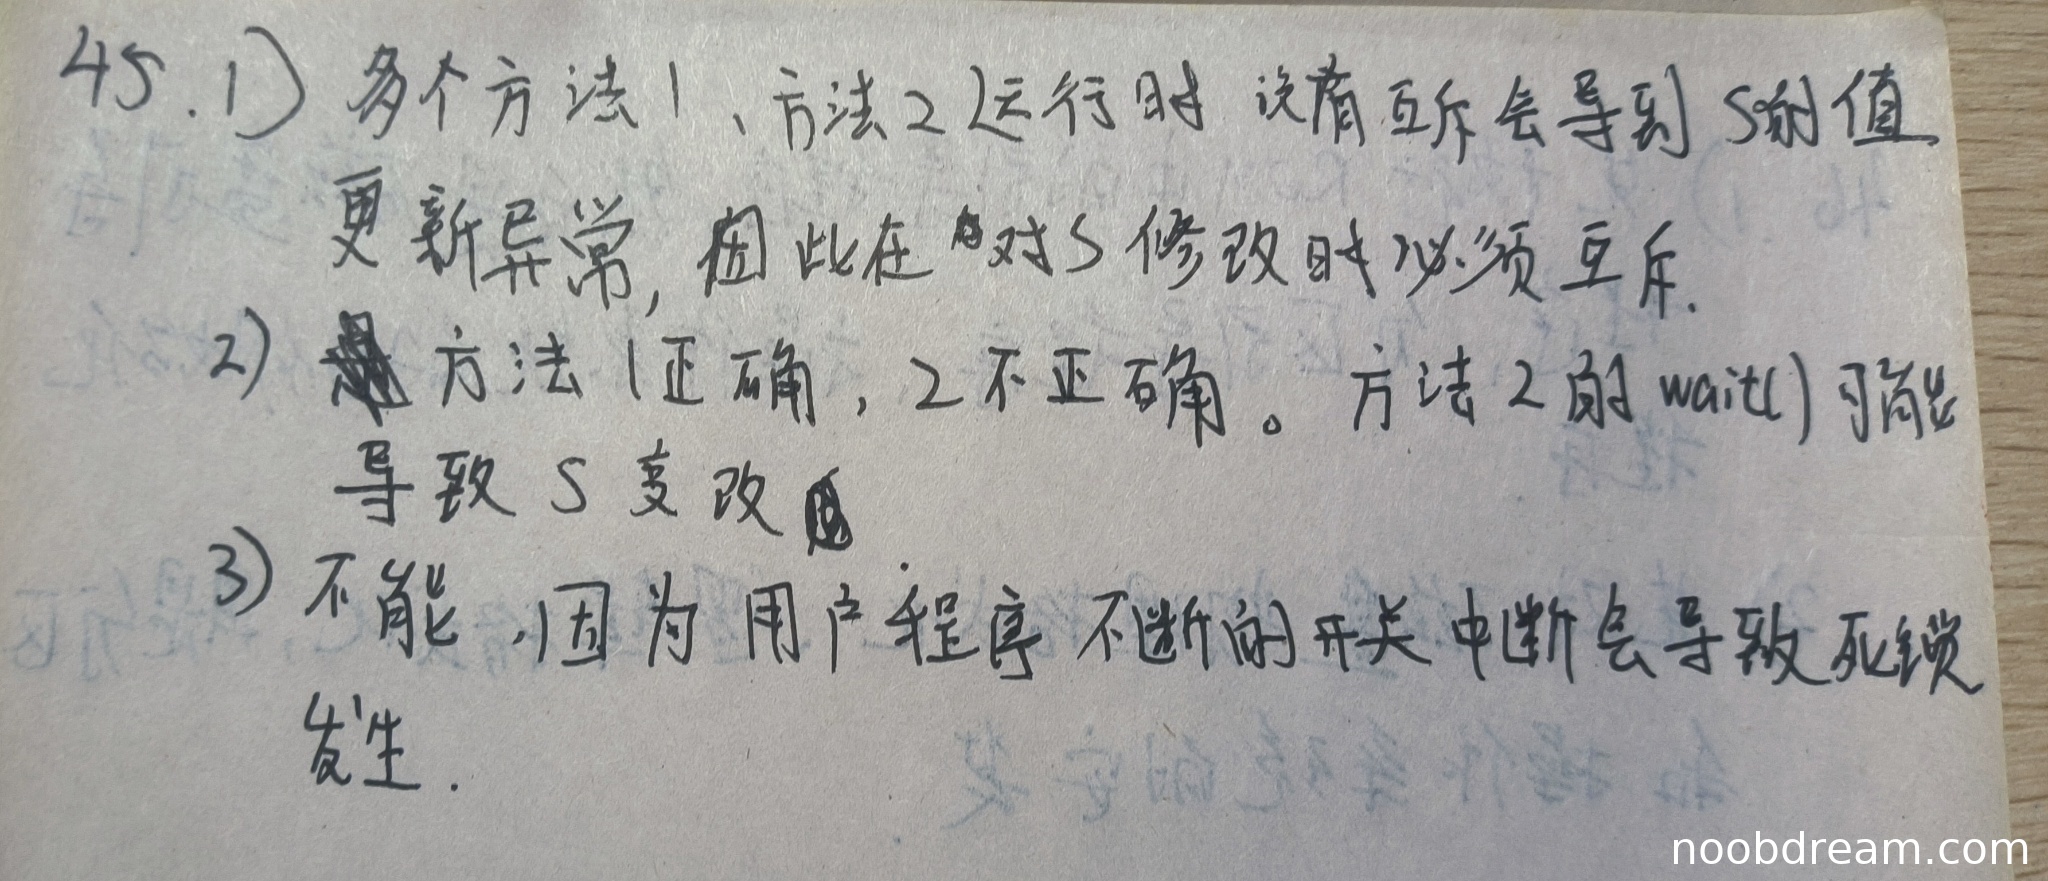 45.1) 多个方法1、方法2运行时 没有互斥会导到 S的值
更新异常, 因此在对S修改时必须互斥.
2) 方法1正确, 2不正确。方法2的wait()可能
导致S变改
3) 不能,因为用户程序不断的开关中断会导致死锁
发生.
noobdream.com